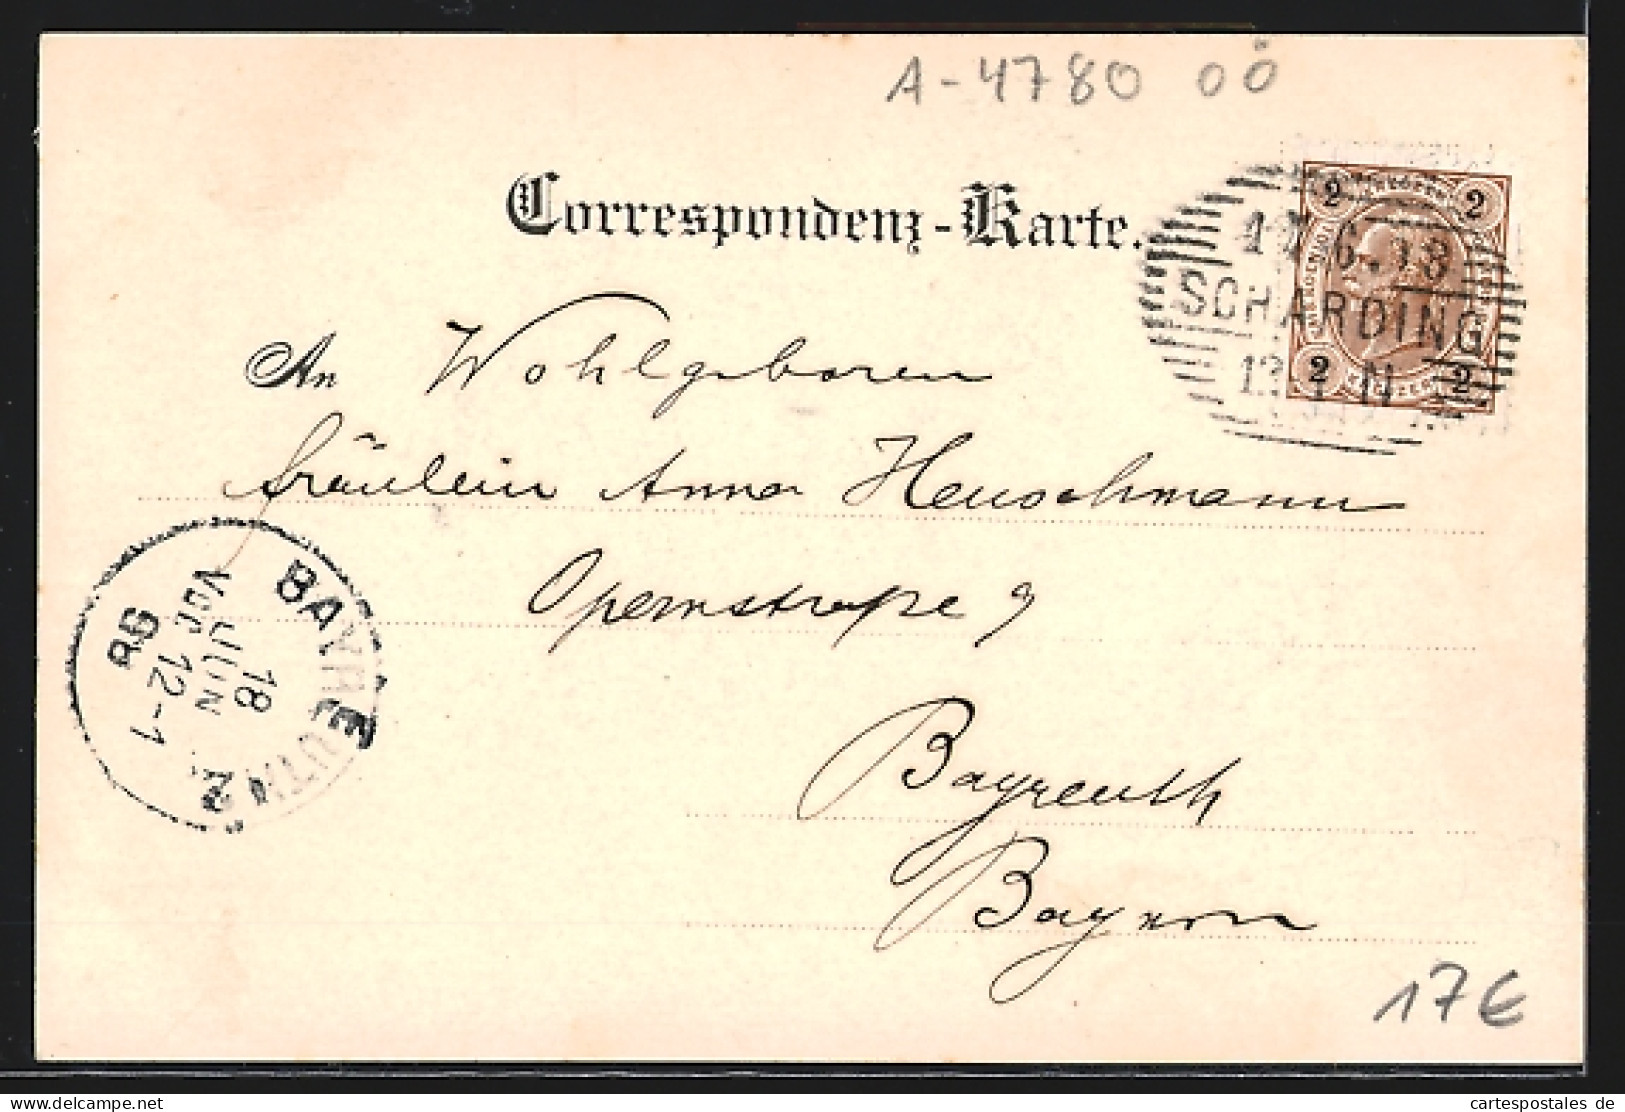 A-4780 OÖ
Correspondenz-Karte.
SCHÄRDING
2 2
2 2
An Wohlgeboren
Fräulein Anna Heuschmann
Opernstraße 9
Bayreuth
Bayern
BAYREUTH 2
18 JUN
VOR 12-1
98
17€
cartespostales de